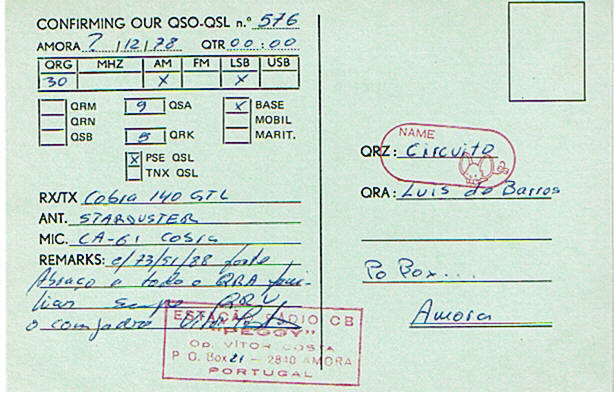 CONFIRMING OUR QSO-QSL n.º 576
AMORA ? /12/78 QTR 00:00
QRG MHZ AM FM LSB USB
30 X X
QRM 9 QSA X BASE
QRN MOBIL
QSB 5 QRK MARIT.
X PSE QSL
TNX QSL
RX/TX Cobra 140 GTL
ANT. STARDUSTER
MIC. CA-61 cobra
REMARKS: c/73/51/88 forte
Abraço e todo o QRA fami-
liar sempre QRV
o compadre
ESTAÇÃO RÁDIO CB
"PEGGY"
Op. VÍTOR COSTA
P O. Box 21 - 2840 AMORA
PORTUGAL
NAME
QRZ: Circuito
QRA: Luis de Barros
Po Box...
Amora